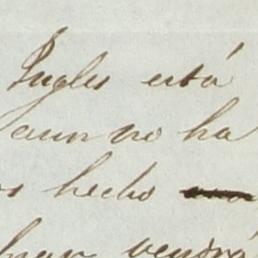 Ingles está
aun no ha
os hecho
vendrá